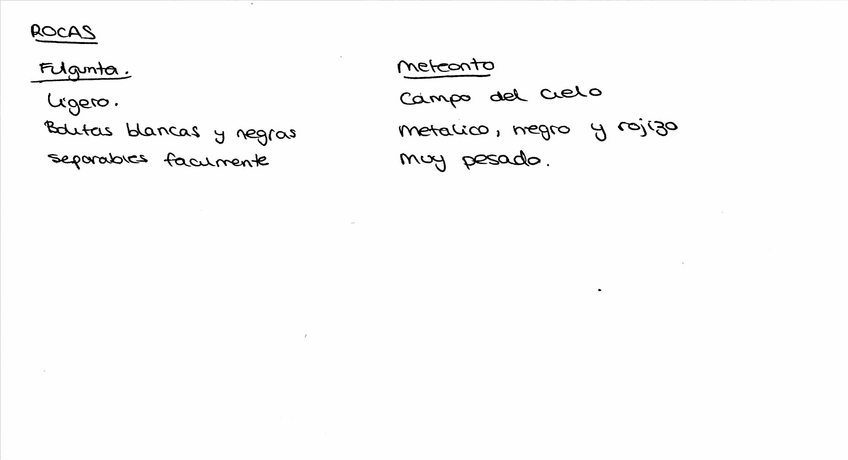 ROCAS
Fulgurita.
Ligero.
Bolitas blancas y negras
separables facilmente
Meteorito
Campo del cielo
Metalico, negro y rojizo
Muy pesado.